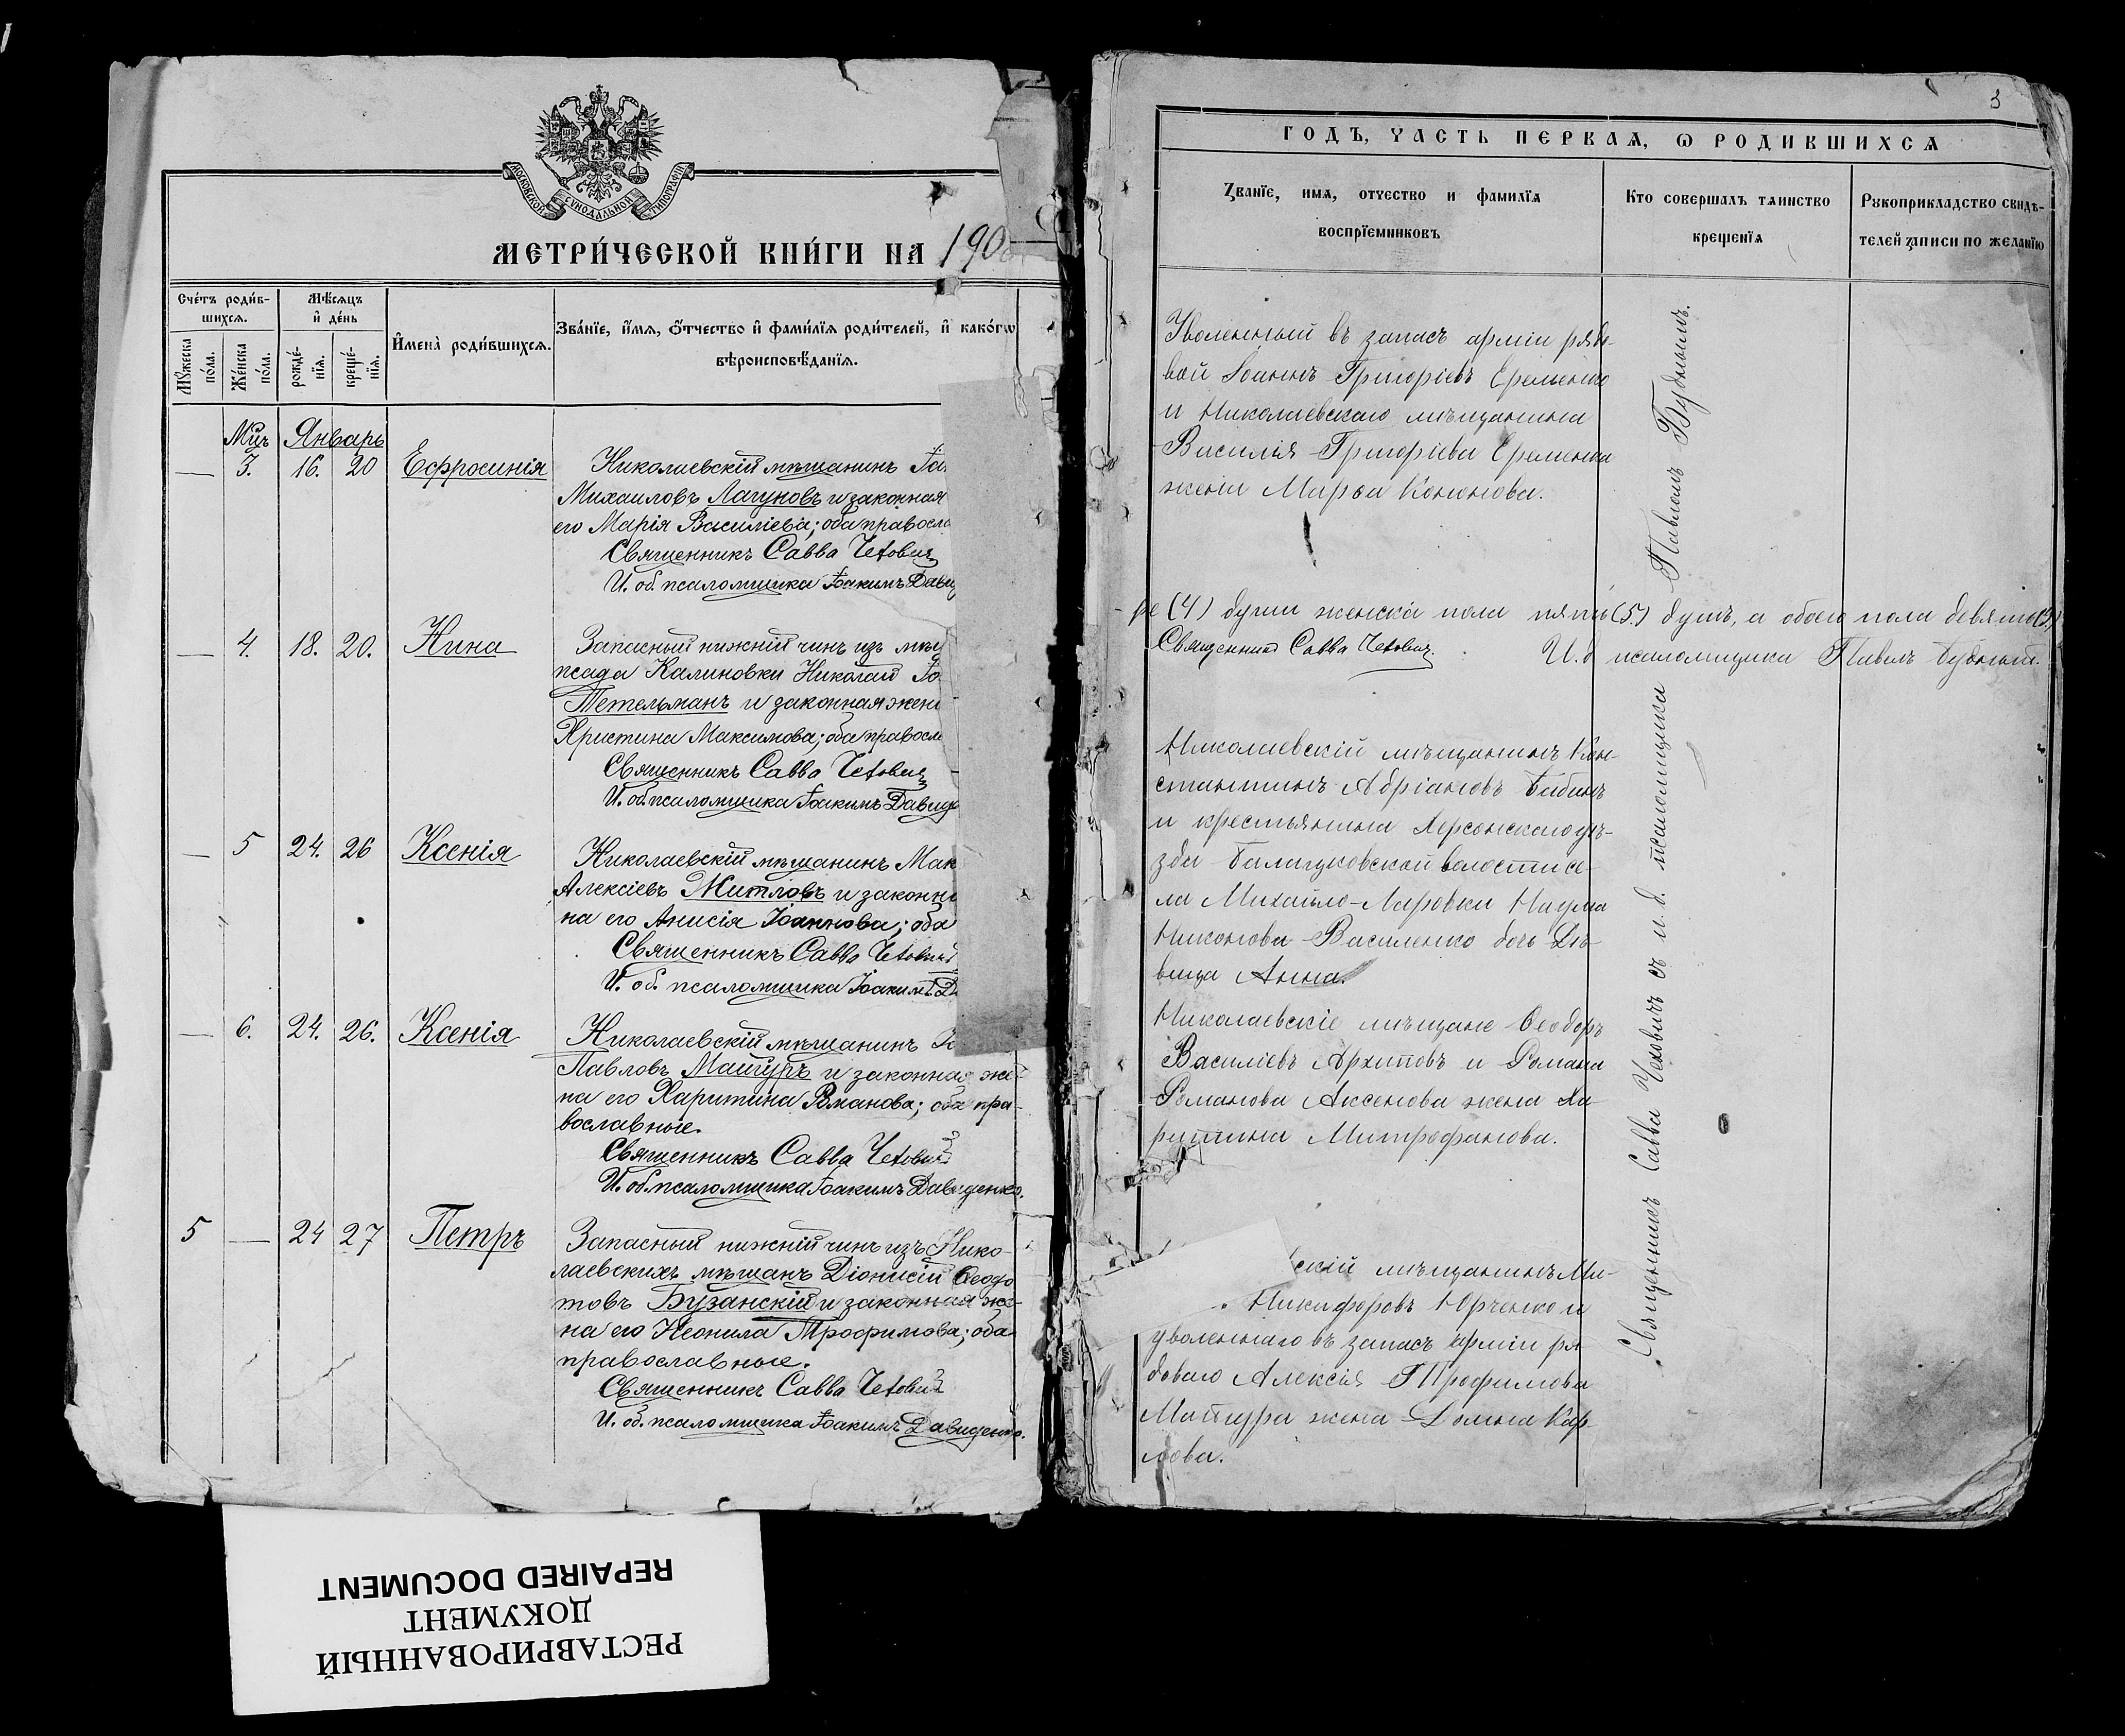 МОСКОВСКОЙ СѴНОДАЛЬНОЙ ТИПОГРАФІИ
МЕТРИ́ЧЕСКОЙ КНИ́ГИ НА 190
Сче́тъ роди́в-
шихсѧ.
Мѣ́сѧцъ
и҆ де́нь
И҆мена̀ роди́вшихсѧ.
Зва́нїе, и҆́мѧ, ѻ҆́тчество и҆ фами́лїѧ роди́телей, и҆ како́гѡ
вѣроисповѣ́данїѧ.
Мꙋ́жеска
по́ла.
Же́нска
по́ла.
рожде́-
нїѧ.
креще́-
нїѧ.
Мцъ Январь
— 3. 16. 20 Ефросинія
Николаевскій мѣщанинъ
Михаиловъ Лагуновъ и законная
его Марія Василіева; оба правосла
Священникъ Савва Чехович
И. об. псаломщика Іоакимъ Давид
4. 18. 20. Нина
Запасный нижній чинъ изъ мѣщ
посада Калиновки Николай Іо
Петельманъ и законная жен
Христина Максимова; оба правосл
Священникъ Савва Чехович
И. об. псаломщика Іоакимъ Давид
— 5 24. 26 Ксенія
Николаевскій мѣщанин Мак
Алексіевъ Житловъ и законна
на его Анисія Іоаннова; оба
Священникъ Савва Чехович
И. об. псаломщика Іоакимъ Д
— 6. 24. 26. Ксенія
Николаевскій мѣщанинъ
Павловъ Мацуръ и законная же-
на его Харитина Романова; оба пра-
вославные.
Священникъ Савва Чехович
И. об. псаломщика Іоакимъ Давиденко.
5 — 24 27 Петръ
Запасный нижній чинъ изъ Нико-
лаевскихъ мѣщанъ Діонисій Ѳеодо
товъ Бузанскій и законная же-
на его Неонила Трофимова; оба
православные.
Священникъ Савва Чехович
И. об. псаломщика Іоакимъ Давиденко.
3
ГОДЪ, ЧАСТЬ ПЕРВАѦ, Ѡ РОДИВШИХСѦ
Званїе, имѧ, отчество и фамилїѧ
воспрїемниковъ
Кто совершалъ таинство
крещенїѧ
Рꙋкоприкладство свидѣ-
телей записи по желанїю
Уволенный въ запасъ арміи рядо-
вой Іоаннъ Григоріевъ Еременко
и Николаевскаго мѣщанина
Василія Григоріева Еременка
жена Марѳа Кононова.
ре (4) души женска пола пять (5.) душъ, а обоего пола девять (9.)
Священник Савва Чехович. И. д псаломщика Павелъ Будный.
Николаевскій мѣщанинъ Кон-
стантинъ Адріановъ Бабинъ
и крестьянина Херсонскаго уѣ-
зда Балацковской волости се-
ла Михайло-Ларовки Наума
Никонова Василенко дочь Дѣ-
вица Анна.
Николаевскіе мѣщане Ѳеодоръ
Василіевъ Архиповъ и Романа
Романова Аксенова жена Ха-
ритина Митрофанова.
скій мѣщанинъ Ми-
Никифоровъ Юрченко и
уволеннаго въ запасъ арміи ря
доваго Алексія Трофимова
Мацура жена Домна Кар
пова.
Священникъ Савва Чеховичъ съ и. д. псаломщика Павломъ Буднымъ.
РЕСТАВРИРОВАННЫЙ
ДОКУМЕНТ
REPAIRED DOCUMENT